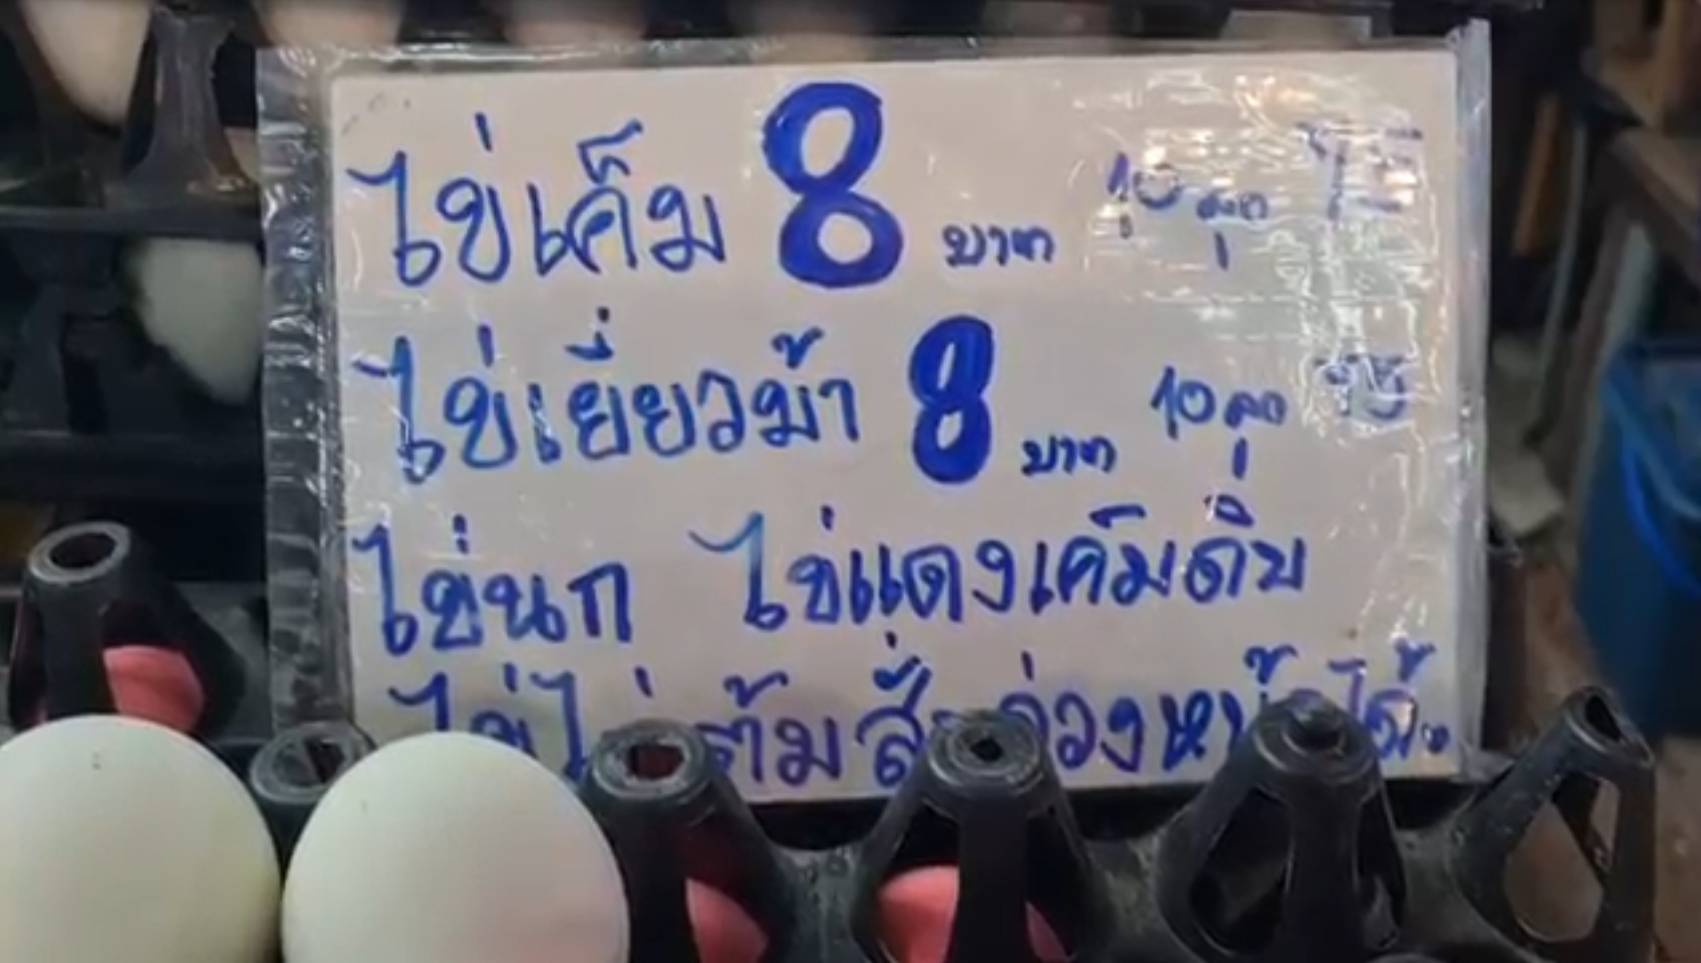 ไข่เค็ม 8 บาท 10 ลูก
ไข่เยี่ยวม้า 8 บาท 10 ลูก
ไข่นก ไข่แดงเค็มดิบ
ไข่ไก่ต้มสั่งล่วงหน้าได้.